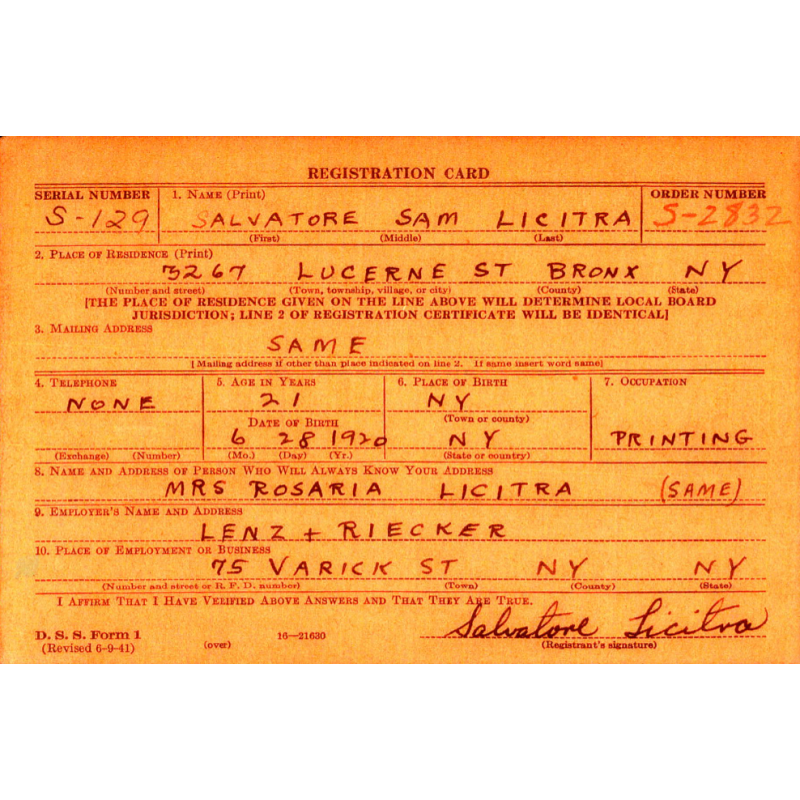 REGISTRATION CARD
SERIAL NUMBER 1. NAME (Print) ORDER NUMBER
S-129 SALVATORE SAM LICITRA S-2832
(First) (Middle) (Last)
2. PLACE OF RESIDENCE (Print)
3267 LUCERNE ST BRONX NY
(Number and street) (Town, township, village, or city) (County) (State)
[THE PLACE OF RESIDENCE GIVEN ON THE LINE ABOVE WILL DETERMINE LOCAL BOARD
JURISDICTION; LINE 2 OF REGISTRATION CERTIFICATE WILL BE IDENTICAL]
3. MAILING ADDRESS
SAME
[Mailing address if other than place indicated on line 2. If same insert word same]
4. TELEPHONE 5. AGE IN YEARS 6. PLACE OF BIRTH 7. OCCUPATION
NONE 21 NY
(Town or county)
DATE OF BIRTH
6 28 1920 NY PRINTING
(Exchange) (Number) (Mo.) (Day) (Yr.) (State or country)
8. NAME AND ADDRESS OF PERSON WHO WILL ALWAYS KNOW YOUR ADDRESS
MRS ROSARIA LICITRA (SAME)
9. EMPLOYER'S NAME AND ADDRESS
LENZ + RIECKER
10. PLACE OF EMPLOYMENT OR BUSINESS
75 VARICK ST NY NY
(Number and street or R. F. D. number) (Town) (County) (State)
I AFFIRM THAT I HAVE VERIFIED ABOVE ANSWERS AND THAT THEY ARE TRUE.
Salvatore Licitra
D. S. S. Form 1 16—21630
(Revised 6-9-41) (over) (Registrant's signature)